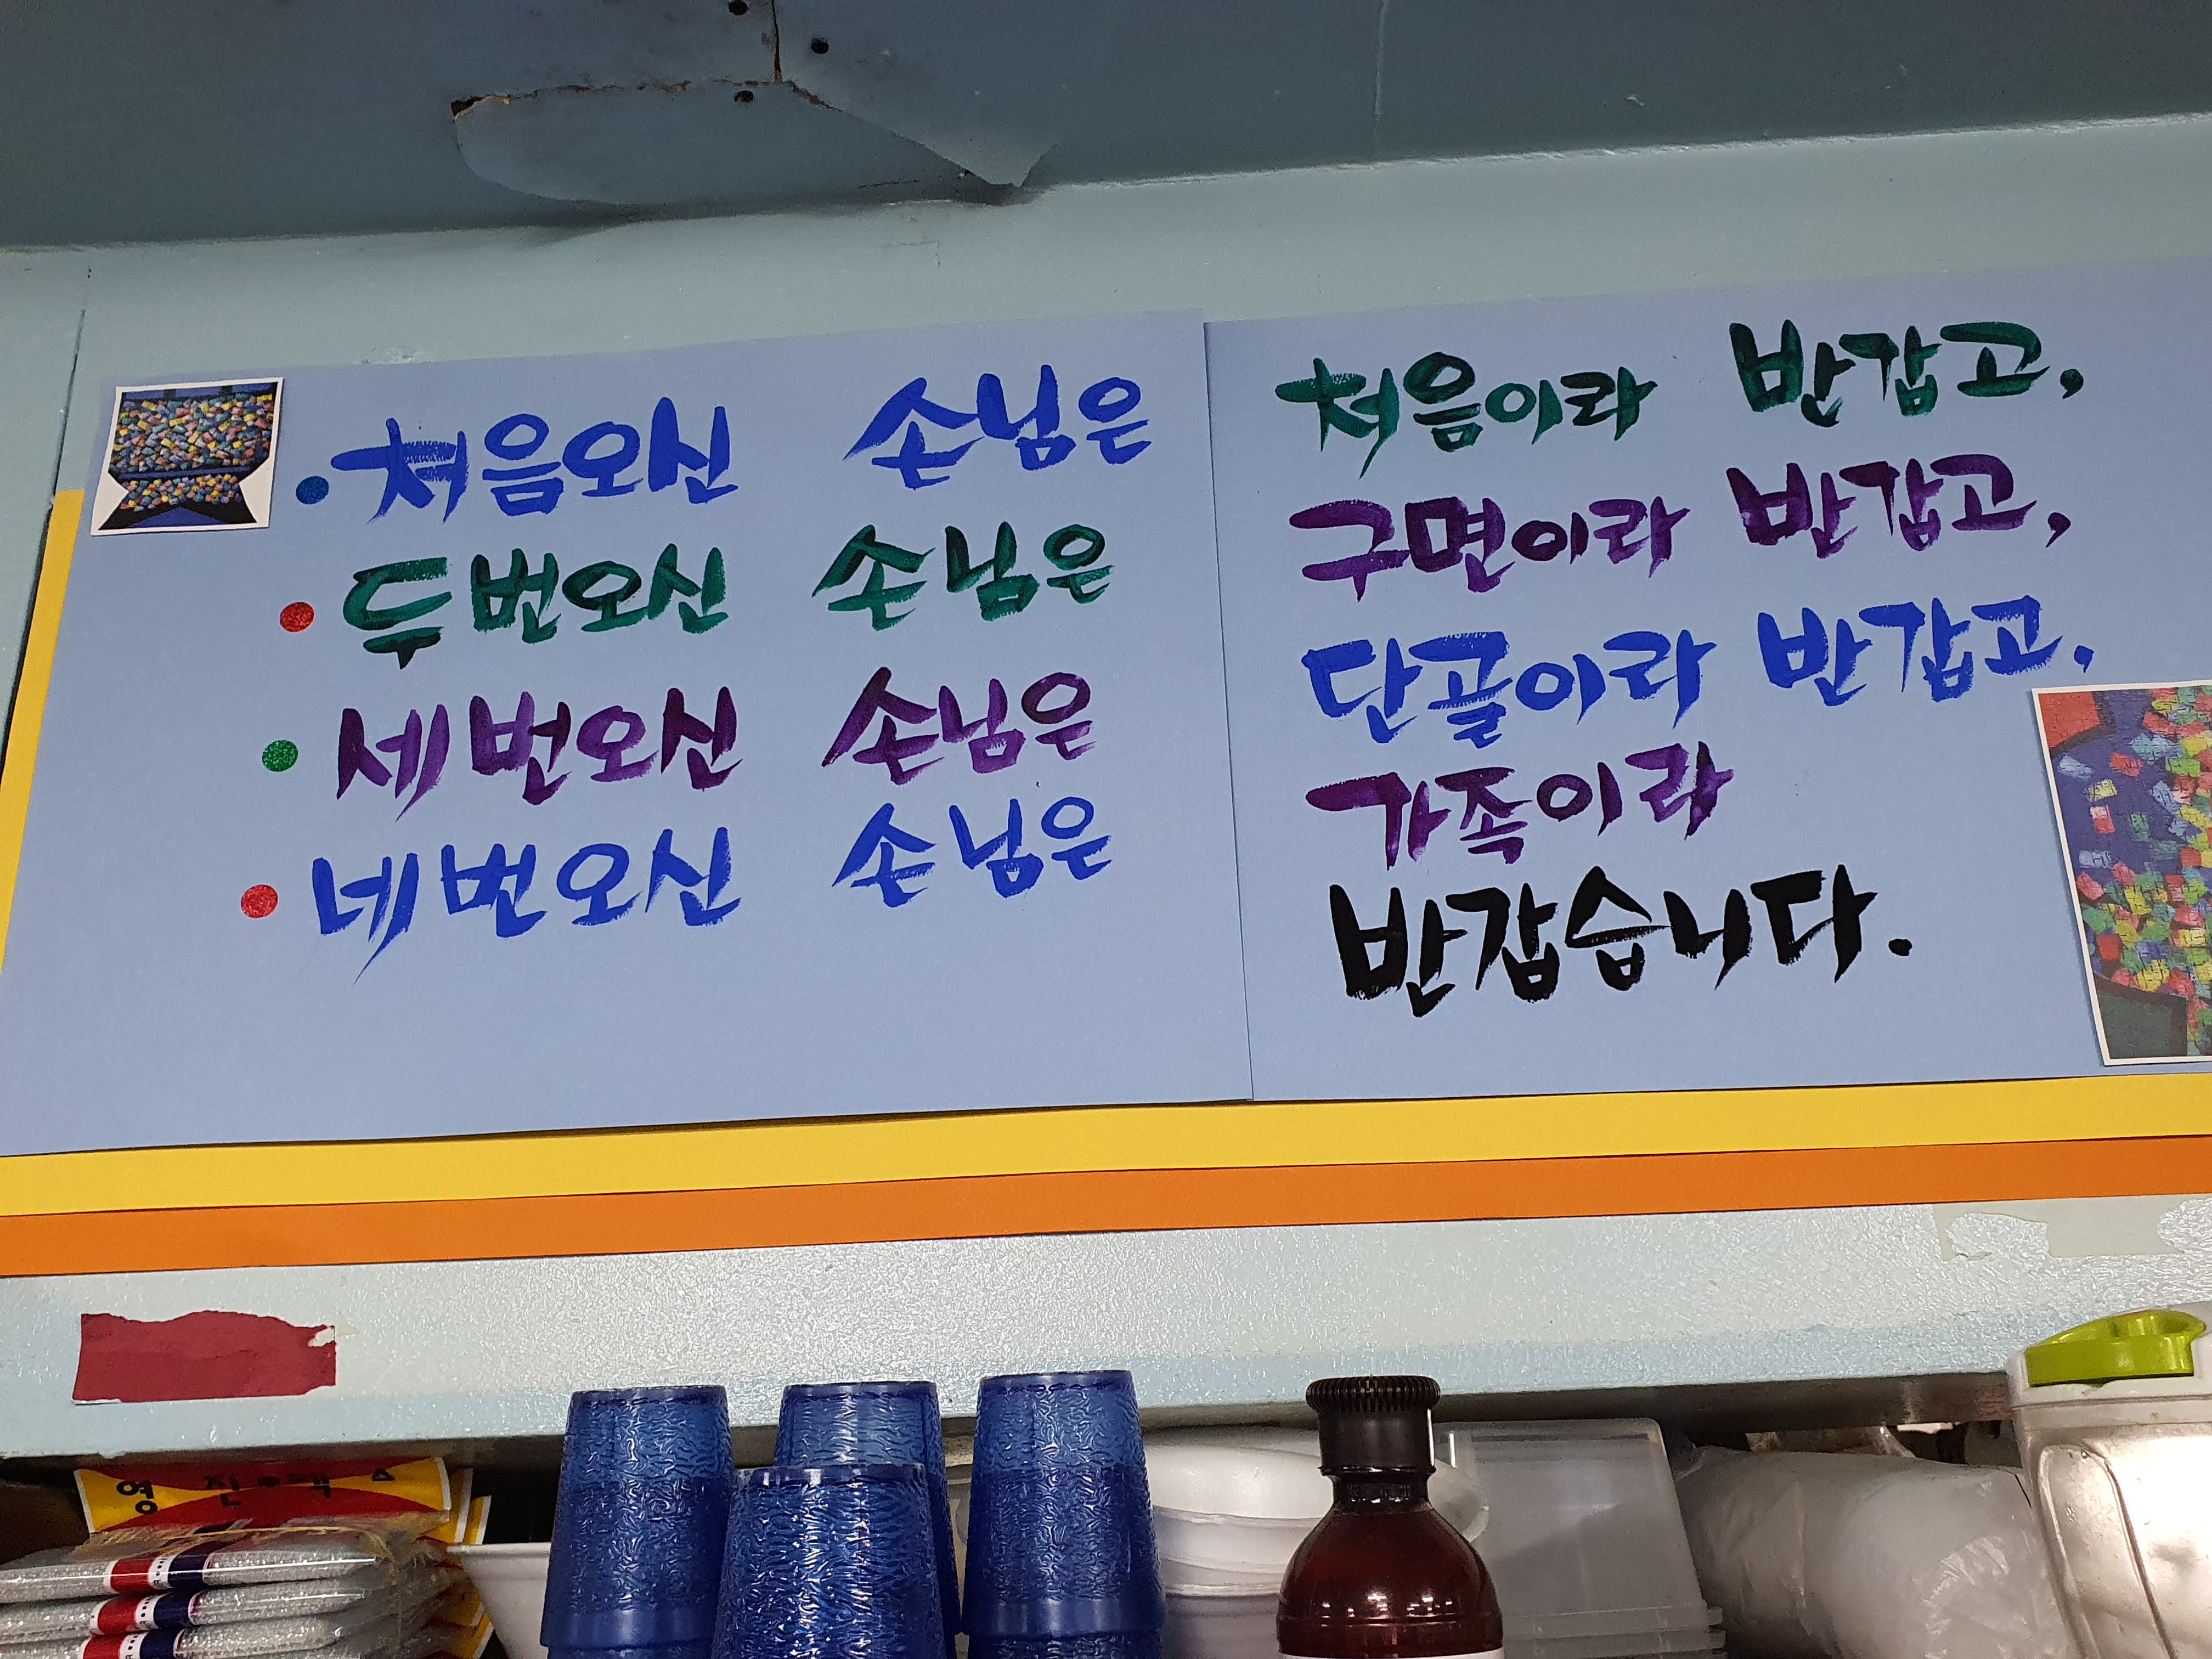 처음오신 손님은 처음이라 반갑고,
두번오신 손님은 구면이라 반갑고,
세번오신 손님은 단골이라 반갑고,
네번오신 손님은 가족이라
반갑습니다.